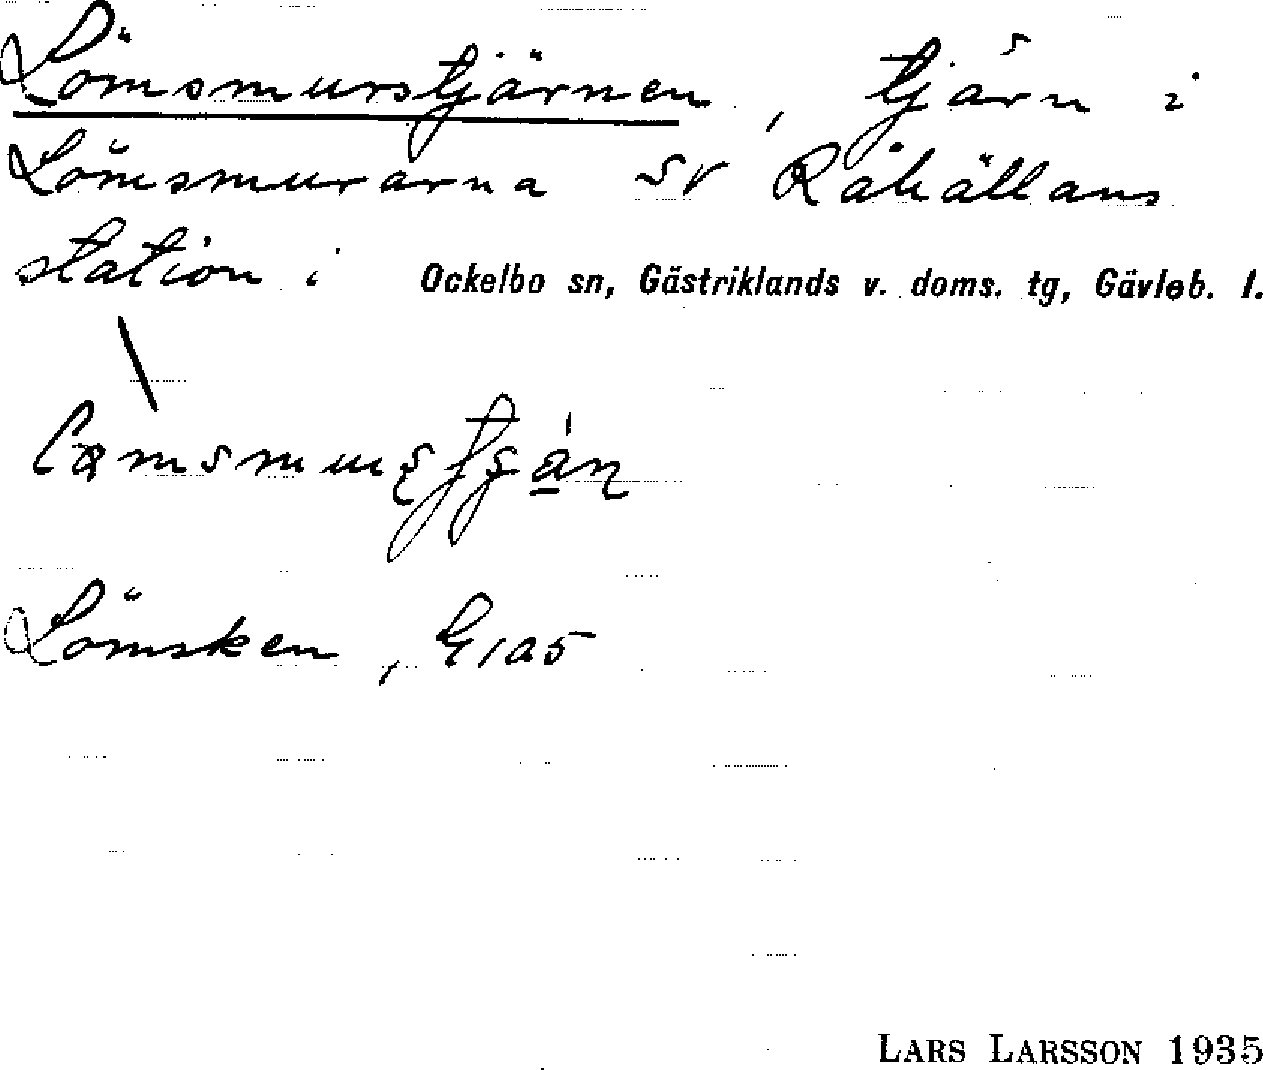 Lömsmurstjärnen, tjärn i
Lömsmurarna SV Råhällans
station i Ockelbo sn, Gästriklands v. doms. tg, Gävleb. l.
Lömsken, G1a5
LARS LARSSON 1935